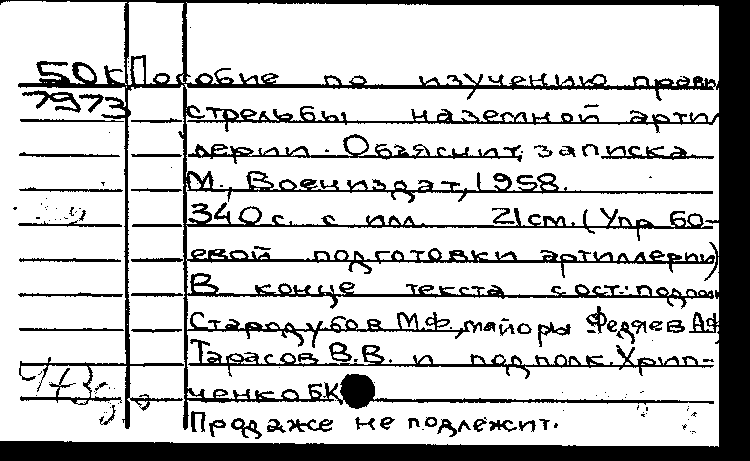 50К Пособие по изучению правил
7973 стрельбы наземной артил
лерии. Объяснит, записка
М., Воениздат, 1958.
340 с. с илл. 21см. (Упр бо-
евой подготовки артиллерии)
В конце текста сост.: подпол
Стародубов М.Ф., майоры Федяев А.Ф,
Тарасов В.В. и подполк. Хрип-
ченко Б К
Продаже не подлежит.